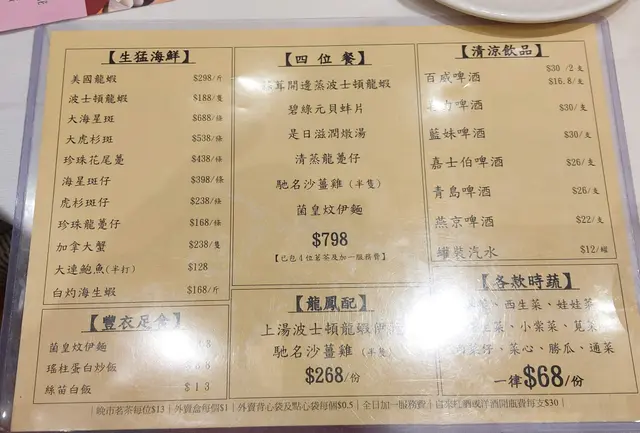 【生猛海鮮】
美國龍蝦 $298/斤
波士頓龍蝦 $188/隻
大海星斑 $688/條
大虎杉斑 $538/條
珍珠花尾躉 $438/條
海星斑仔 $398/條
虎杉斑仔 $238/條
珍珠龍躉仔 $168/條
加拿大蟹 $238/隻
大連鮑魚(半打) $128
白灼海生蝦 $168/斤
【豐衣足食】
菌皇炆伊麵
瑤柱蛋白炒飯
絲苗白飯 $13
【四位餐】
茸開邊蒸波士頓龍蝦
碧綠元貝蚌片
是日滋潤燉湯
清蒸龍躉仔
馳名沙薑雞(半隻)
菌皇炆伊麵
$798
【已包4位茗茶及加一服務費】
【龍鳳配】
上湯波士頓龍蝦
馳名沙薑雞(半隻)
$268/份
【清涼飲品】
百威啤酒 $30/2支
$16.8/支
力啤酒 $30/支
藍妹啤酒 $30/支
嘉士伯啤酒 $26/支
青島啤酒 $26/支
燕京啤酒 $22/支
罐裝汽水 $12/罐
【各款時蔬】
菜、西生菜、娃娃菜
菜、小棠菜、莧菜
菜仔、菜心、勝瓜、通菜
一律$68/份
|晚市茗茶每位$13|外賣盒每個$1|外賣背心袋及點心袋每個$0.5|全日加一服務費|自來紅酒或洋酒開瓶費每支$30|